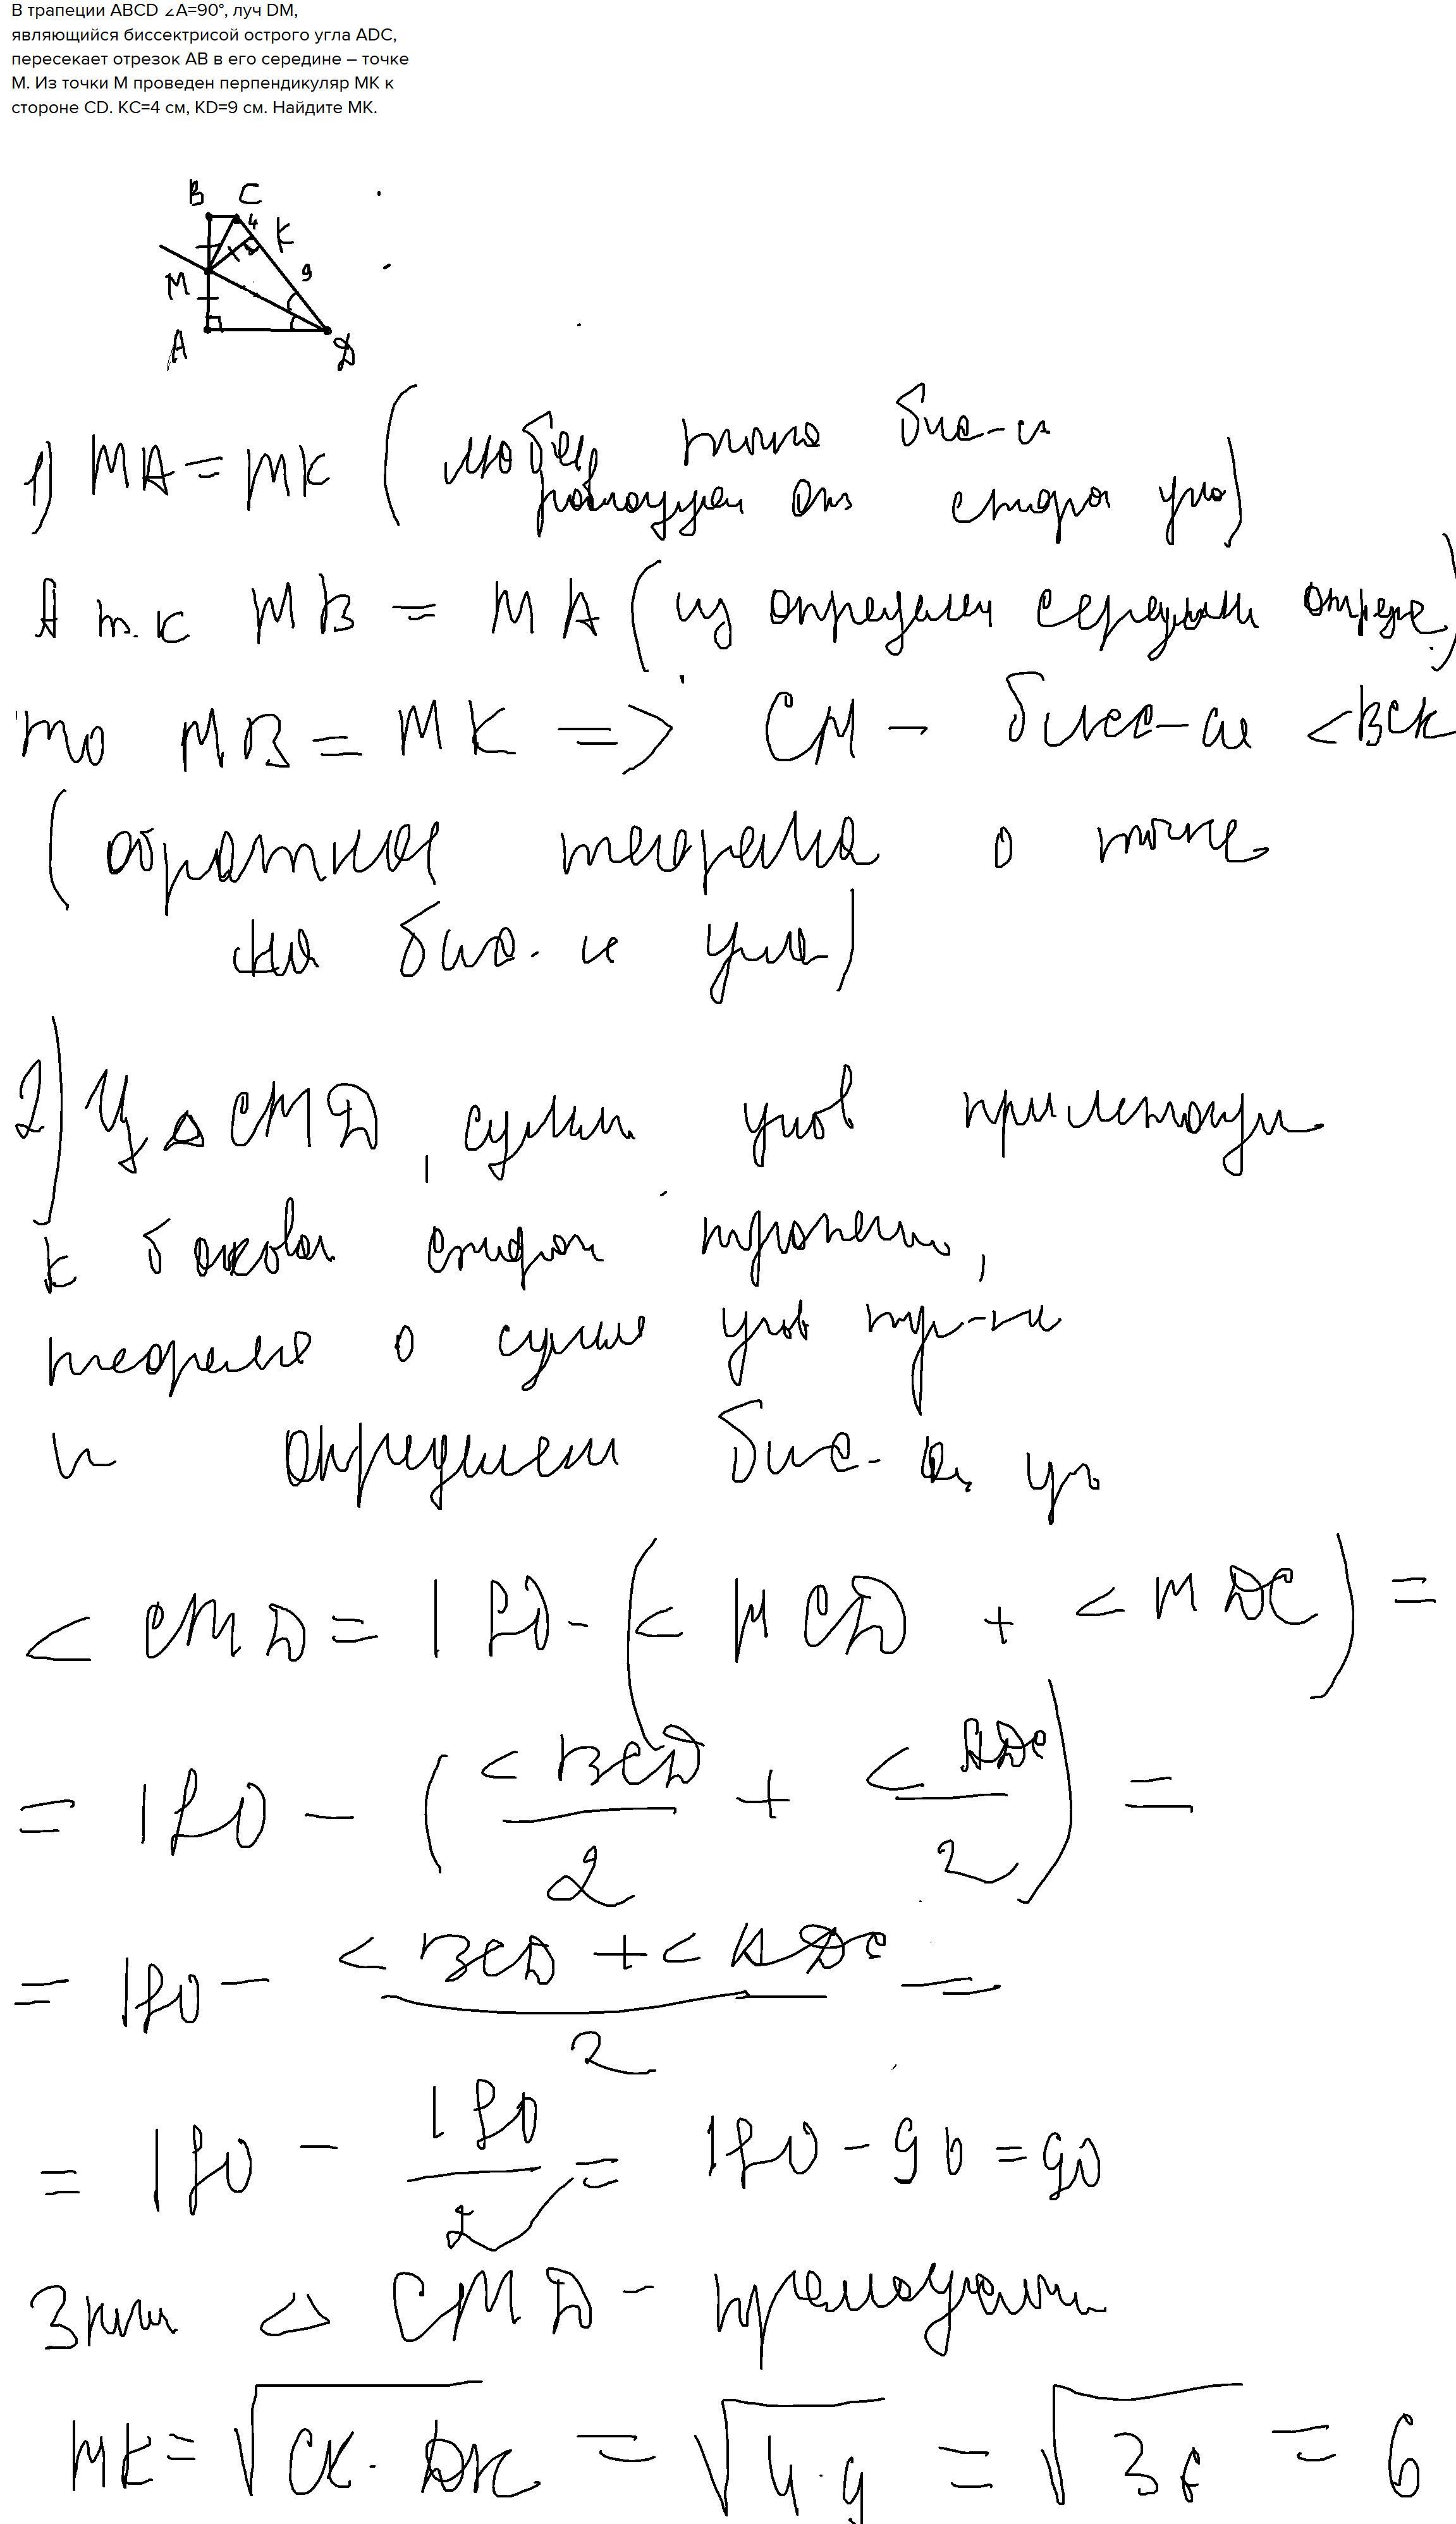 В трапеции ABCD ∠A=90°, луч DM,
являющийся биссектрисой острого угла ADC,
пересекает отрезок AB в его середине – точке
М. Из точки М проведен перпендикуляр МК к
стороне CD. KC=4 см, KD=9 см. Найдите МК.
B C
4 K
M 9
A D
1) MA = MK ( любая точка бис-и
от сторон угла)
А т.к MB = MA (из определен середины отрезк)
то MB = MK => CM – бисс-са <BCK
(обратная теорема о точке
на бис-и угла)
2) Из △ CMD, сумма углов прилежащи
к боковой сторон трапеци,
теореме о сумме углов тр-ка
и определен бис-и уг
< CMD = 180 - (< MCD + < MDC) =
= 180 - (< BCD / 2 + < ADC / 2) =
= 180 - < BCD + < ADC / 2 =
= 180 - 180 / 2 = 180 - 90 = 90
Знач △ CMD - прямоугольн
MK = √CK · DK = √4·9 = √36 = 6